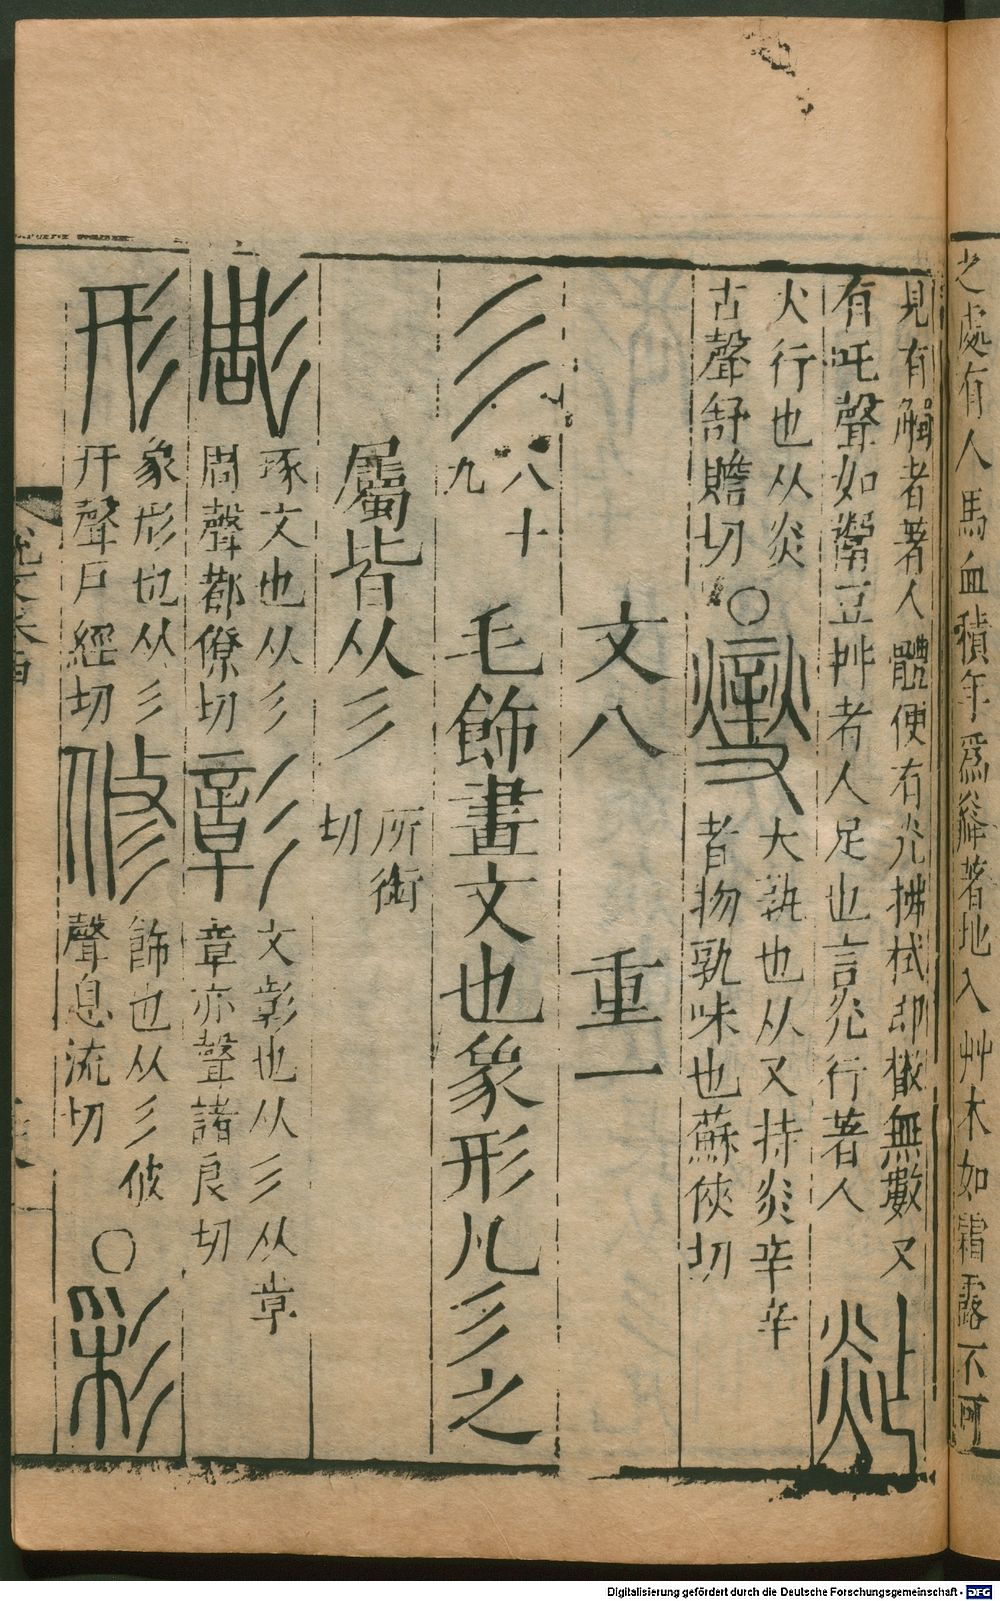 之處有人馬血積年爲㷠著地入艸木如霜露不可
見有觸者著人體便有光拂拭即散無數又
有吒聲如鬻豆艸者人足也言光行著人
㷖
火行也从炎
古聲舒贍切○
燮
大孰也从又持炎辛辛
者物孰味也蘇俠切
文八 重一
彡
八十
九
毛飾畫文也象形凡彡之
屬皆从彡
所銜
切
彫
琢文也从彡
周聲都僚切
彰
文彰也从彡从章
章亦聲諸良切
形
象形也从彡
幵聲戶經切
修
飾也从彡攸
聲息流切
○
彩
Digitalisierung gefördert durch die Deutsche Forschungsgemeinschaft - DFG